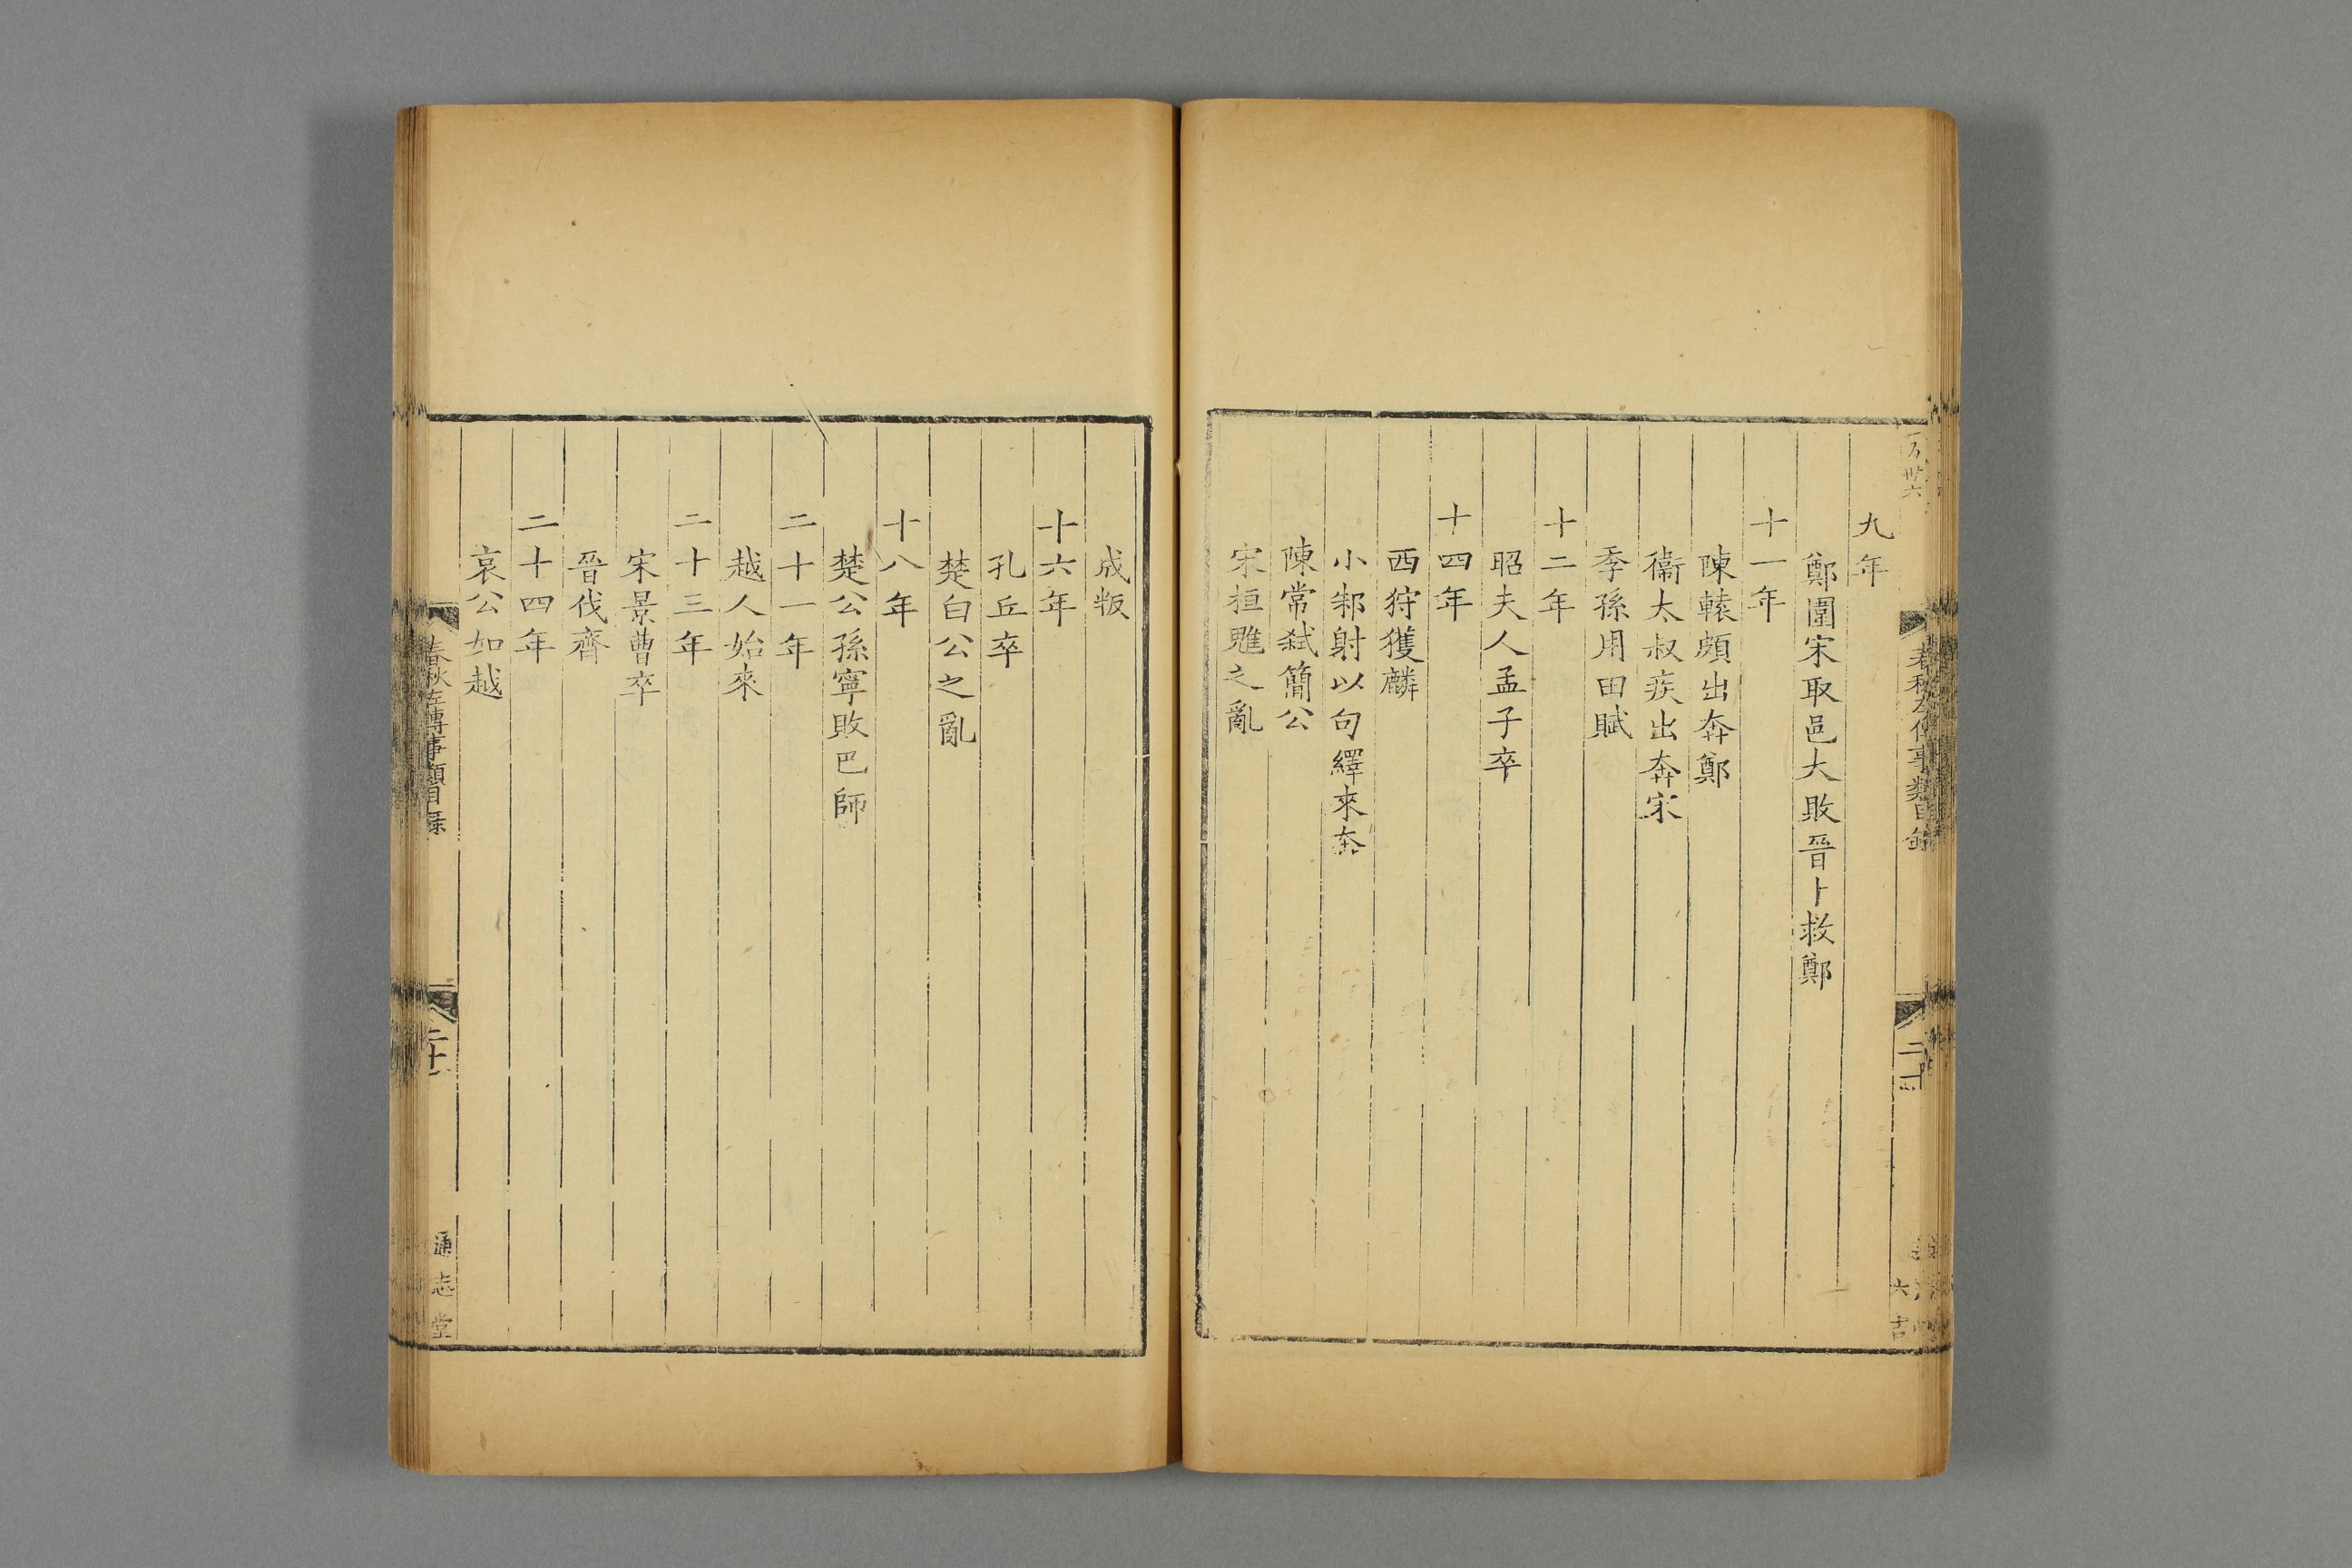 九年
鄭圍宋取邑大敗晉卜救鄭
十一年
陳轅頗出奔鄭
衞太叔疾出奔宋
季孫用田賦
十二年
昭夫人孟子卒
十四年
西狩獲麟
小邾射以句繹來奔
陳常弑簡公
宋桓魋之亂
成叛
十六年
孔丘卒
楚白公之亂
十八年
楚公孫寧敗巴師
二十一年
越人始來
二十三年
宋景曹卒
晉伐齊
二十四年
哀公如越
春秋左傳事類目錄
通志堂